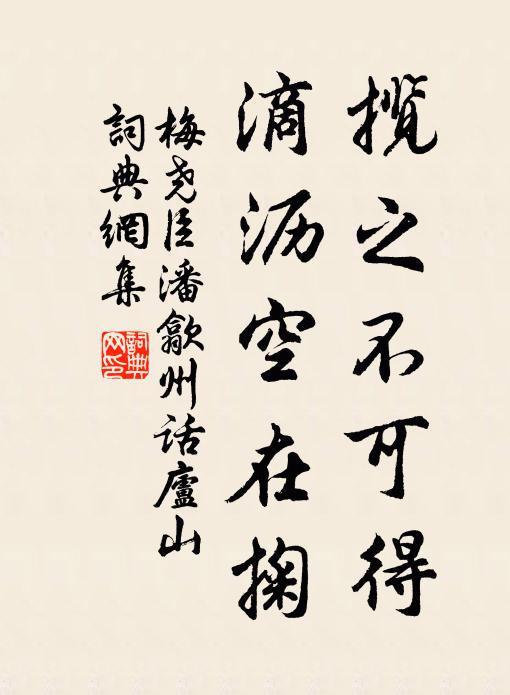 揽之不可得
滴沥空在掬
梅尧臣潘歙州话廬山
詞典網集
詞典網印